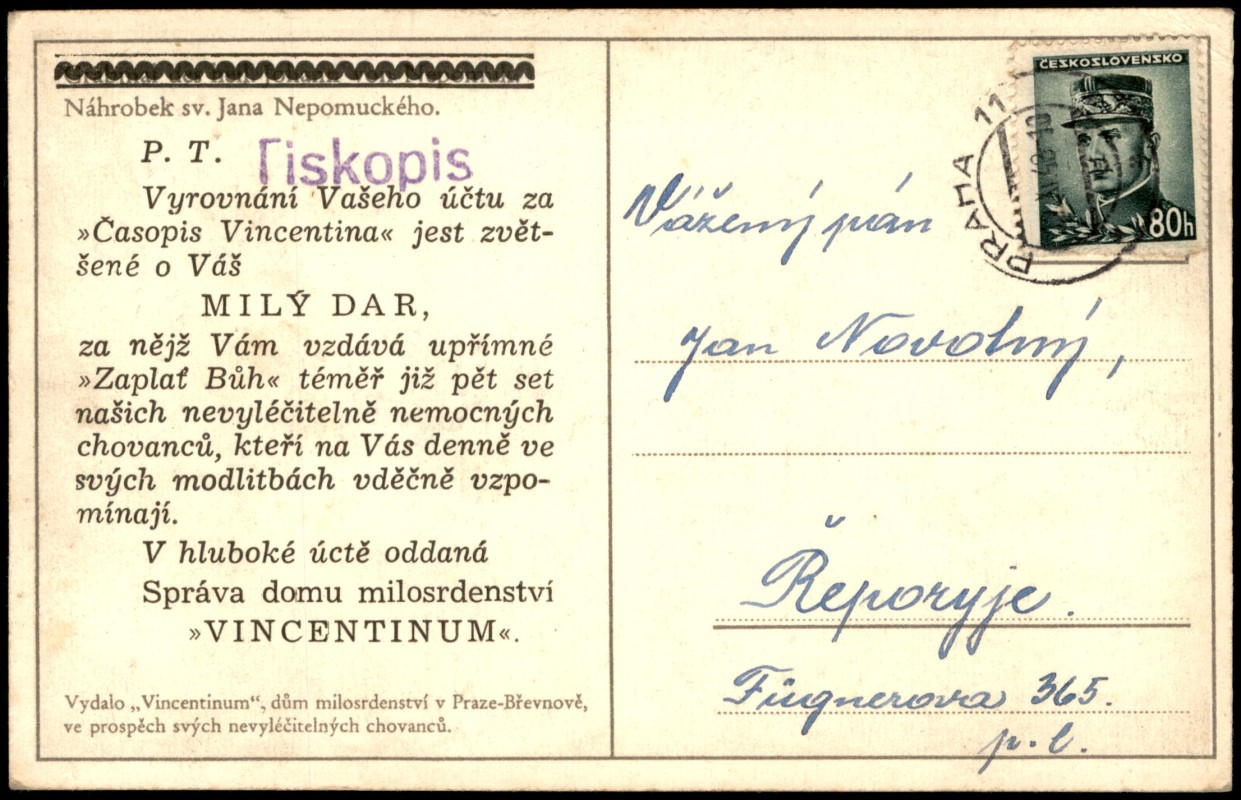 Náhrobek sv. Jana Nepomuckého.
P. T.
Tiskopis
Vyrovnání Vašeho účtu za
»Časopis Vincentina« jest zvět-
šené o Váš
MILÝ DAR,
za nějž Vám vzdává upřímné
»Zaplať Bůh« téměř již pět set
našich nevyléčitelně nemocných
chovanců, kteří na Vás denně ve
svých modlitbách vděčně vzpo-
mínají.
V hluboké úctě oddaná
Správa domu milosrdenství
»VINCENTINUM«.
Vydalo „Vincentinum“, dům milosrdenství v Praze-Břevnově,
ve prospěch svých nevyléčitelných chovanců.
ČESKOSLOVENSKO
80h
PRAHA 11
Vážený pán
Jan Novotný,
Řeporyje.
Fügnerova 365.
p. l.